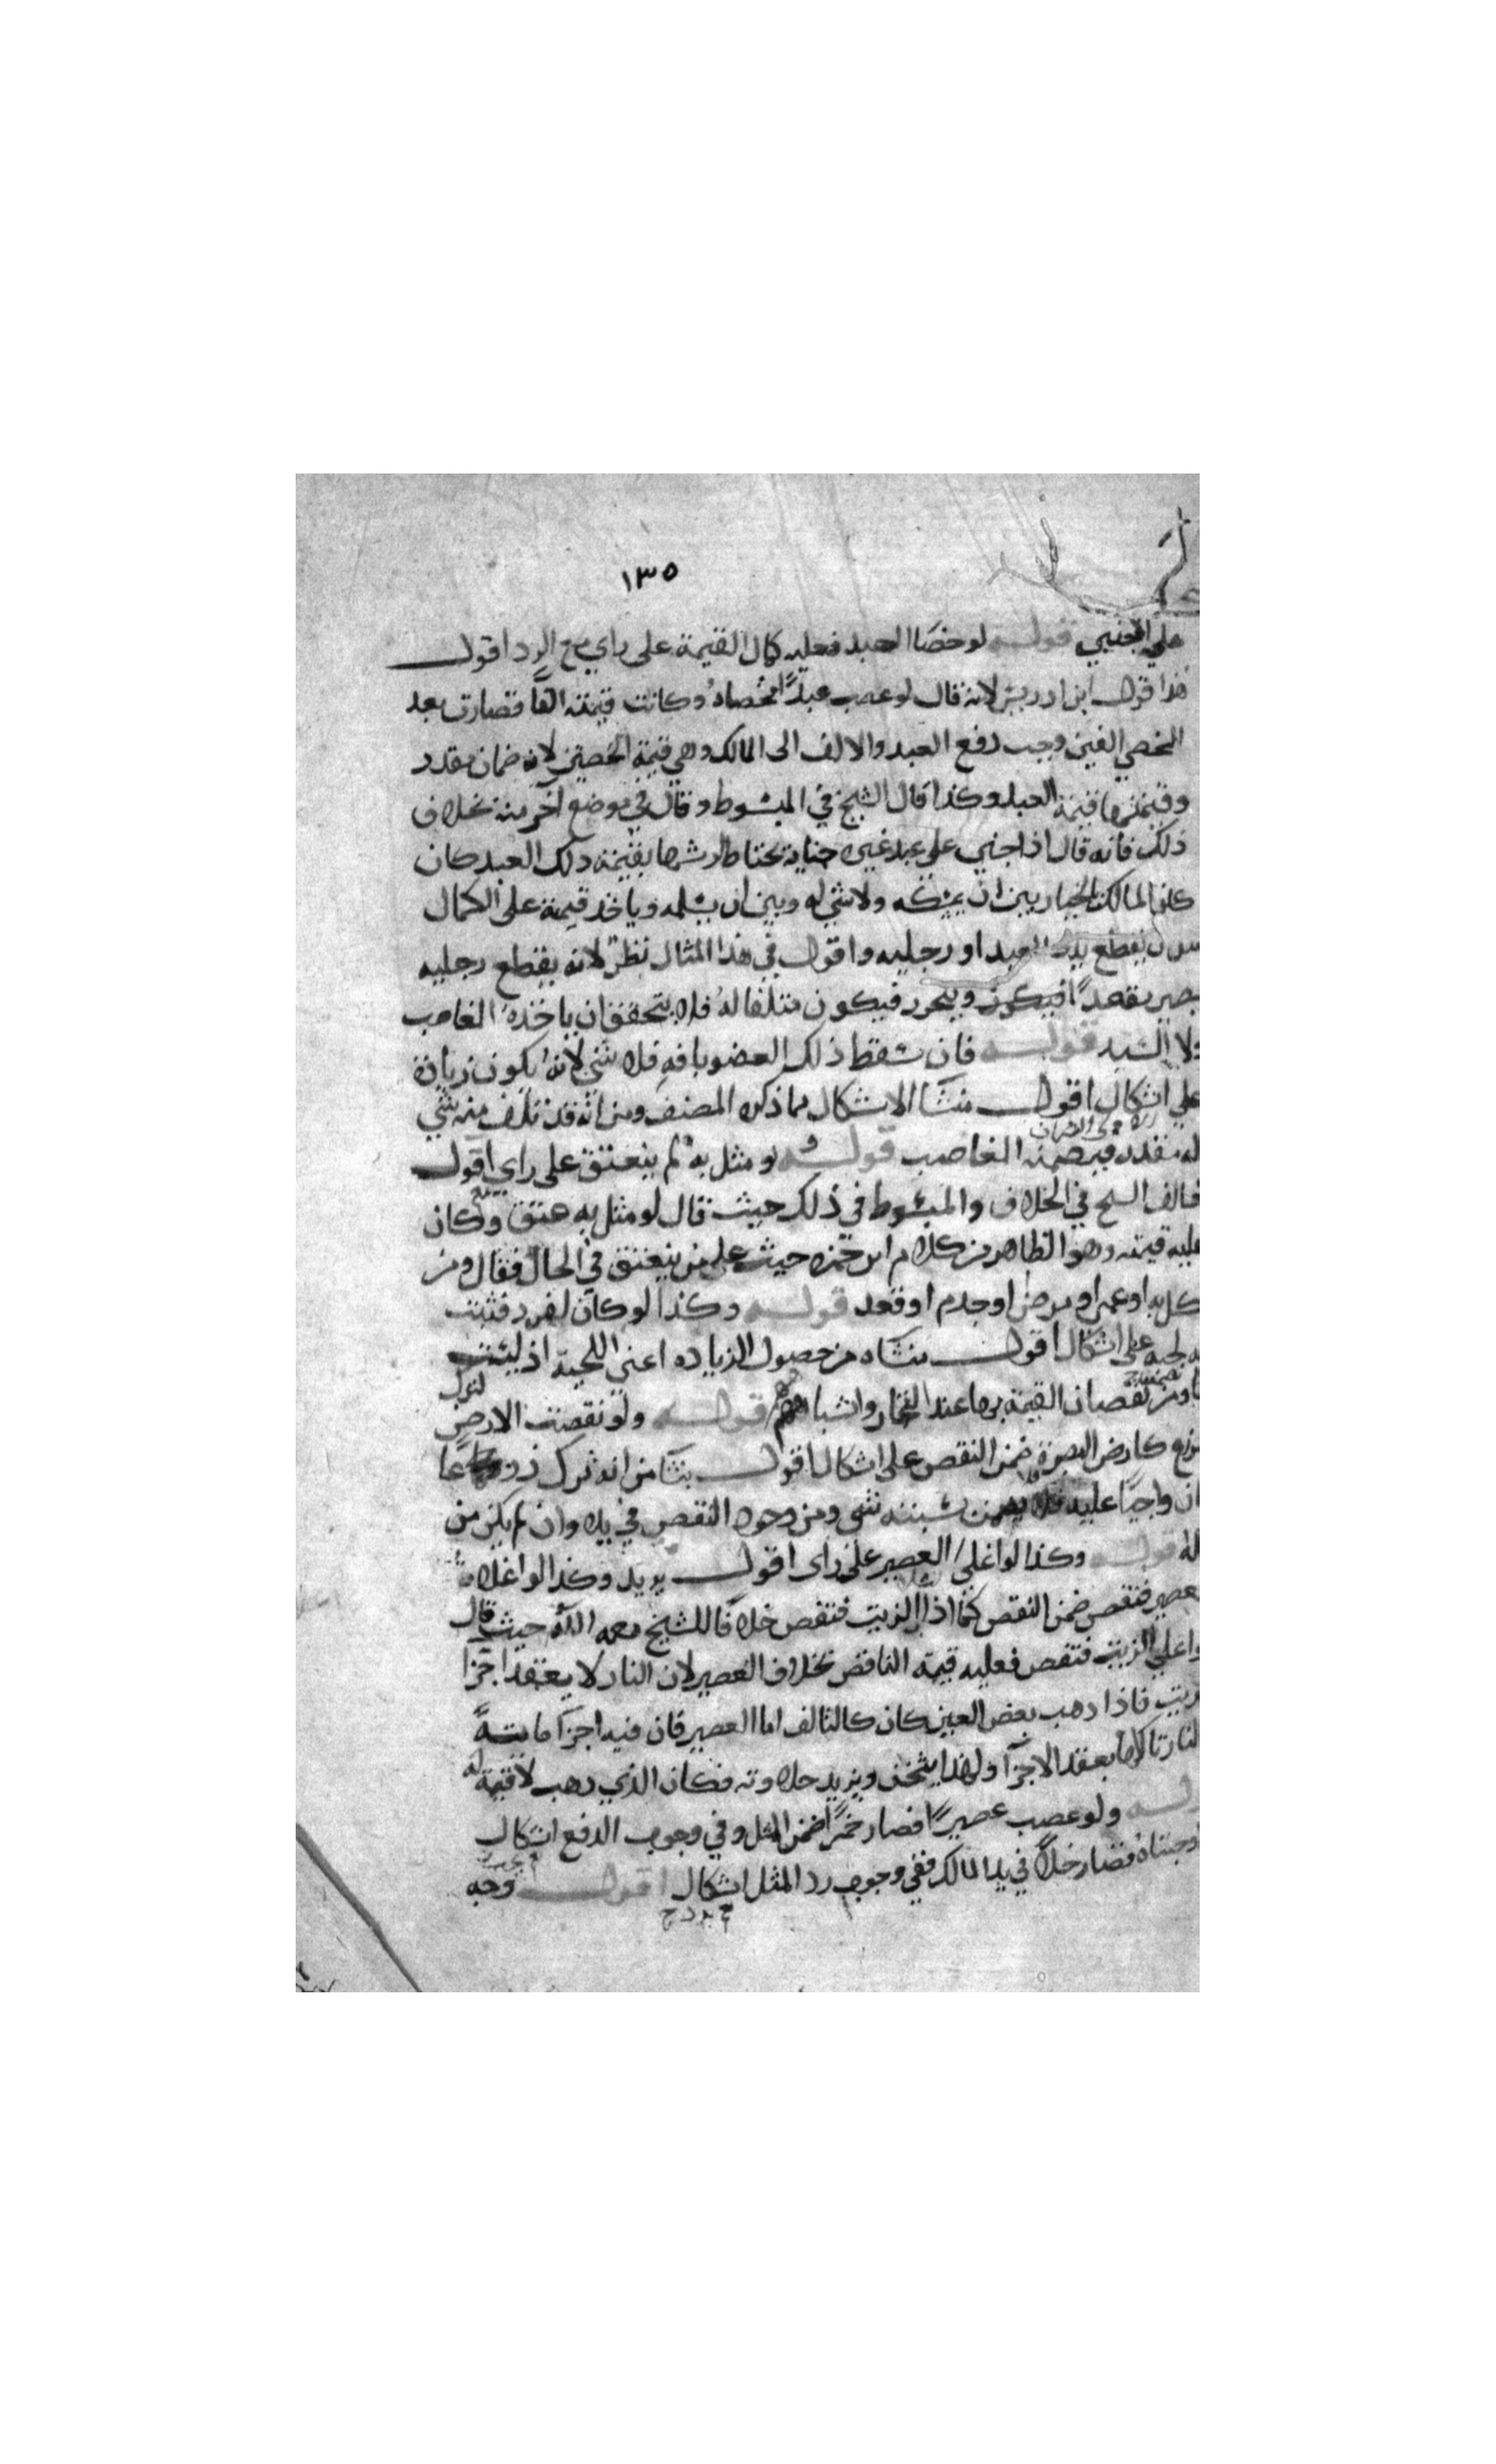 ١٣٥
على الاجنبي قوله لو خصا العبد فعليه كمال القيمة على راي مع الرد اقول
هذا قول ابن ادريس لانه قال لو غصب عبدًا فخصاه وكانت قيمته الفًا فصارت بعد
الخصي الفين وجب دفع العبد والالف الى المالك وهي قيمة الخصيتين لانه ضمان مقدر
وقيمتهما قيمة العبد وكذا قال الشيخ في المبسوط وقال في موضع آخر منه بخلاف
ذلك فانه قال اذا جني على عبد غيره جناية تحتاط ارشها بقيمة ذلك العبد كان
المالك بالخيار بين ان يمسكه ولا شي له وبين ان يسلمه وياخذ قيمة على الكمال
يقطع يد العبد او رجليه واقول في هذا المثال نظر لانه بقطع رجليه
يصير مقعدًا وينحرر فيكون متلفا له فلا يتحقق ان ياخذه الغاصب
ولا السيد قوله فان سقط ذلك العضو بافه فلا شي لانه يكون زيادة
على اشكال اقول منشا الاشكال مما ذكره المصنف ومن انه قد تلف منه شي
له مقدر فيضمنه الغاصب قوله ولو مثل به لم ينعتق على راي اقول
خالف الشيخ في الخلاف والمبسوط في ذلك حيث قال لو مثل به عتق وكان
عليه قيمته وهو الظاهر من كلام ابن حمزه حيث على من ينعتق في الحال فقال ومن
نكل به او عمي او برص او جذم او قعد قوله وكذا لو كان امرد فنبتت
لحيه على اشكال اقول منشاه من حصول الزياده اعني اللحية اذ ليست
ومن نقصان القيمة بها عند التجار واشباههم قوله ولو نقصت الارض لترك
الزرع كارض البصرة ضمن النقص على اشكال اقول ينشا من انه ترك زرعًا
كان واجبًا عليه فلا يضمن بسببه شي ومن وجود النقص في يده وان لم يكن من
قوله وكذا لو اغلى العصير على راي اقول يريد وكذا لو اغلاه
العصير فنقص ضمن النقص كما اذا الزيت فنقص خلافًا للشيخ رحمه الله حيث قال
لو اغلى الزيت فنقص فعليه قيمة الناقص بخلاف العصير لان النار لا يعقد اجزا
الزيت فاذا ذهب بعض العين كان كالتالف اما العصير فان فيه اجزآ مايية
النار تاكلها يعقد الاجزآ ولهذا يثخن ويزيد حلاوته فكان الذي ذهب لا قيمة له
قوله ولو غصب عصيرًا فصار خمرًا ضمن المثل وفي وجوب الدفع اشكال
اوجبناه فصار خلا في يد المالك ففي وجوب رد المثل اشكال اقول وجه